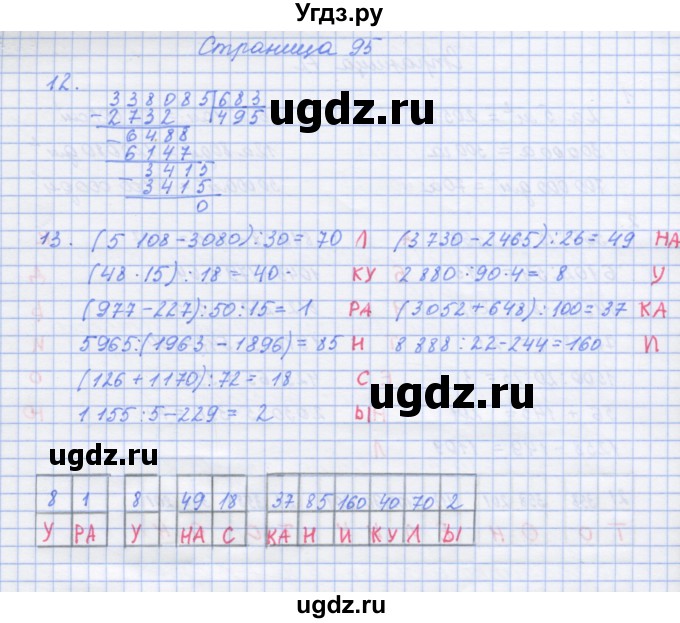 Угдз.ру
Страница 95
12.
338085 683
- 2732 495
- 6488
6147
- 3415
- 3415
0
ugdz.ru
ugdz.ru
13. (5 108 - 3080) : 30 = 70 Л (3 730 - 2465) : 26 = 49 НА
(48 · 15) : 18 = 40 · КУ 2 880 : 90 · 4 = 8 У
(977 - 227) : 50 : 15 = 1 РА (3052 + 648) : 100 = 37 КА
5965 : (1963 - 1896) = 85 Н 8 888 : 22 - 244 = 160 И
(126 + 1170) : 72 = 18 С
1 155 : 5 - 229 = 2 Ы
ugdz.ru
ugdz.ru
8 1 8 49 18 37 85 160 40 70 2
У РА У НА С КА Н И КУ Л Ы
ugdz.ru
ugdz.ru